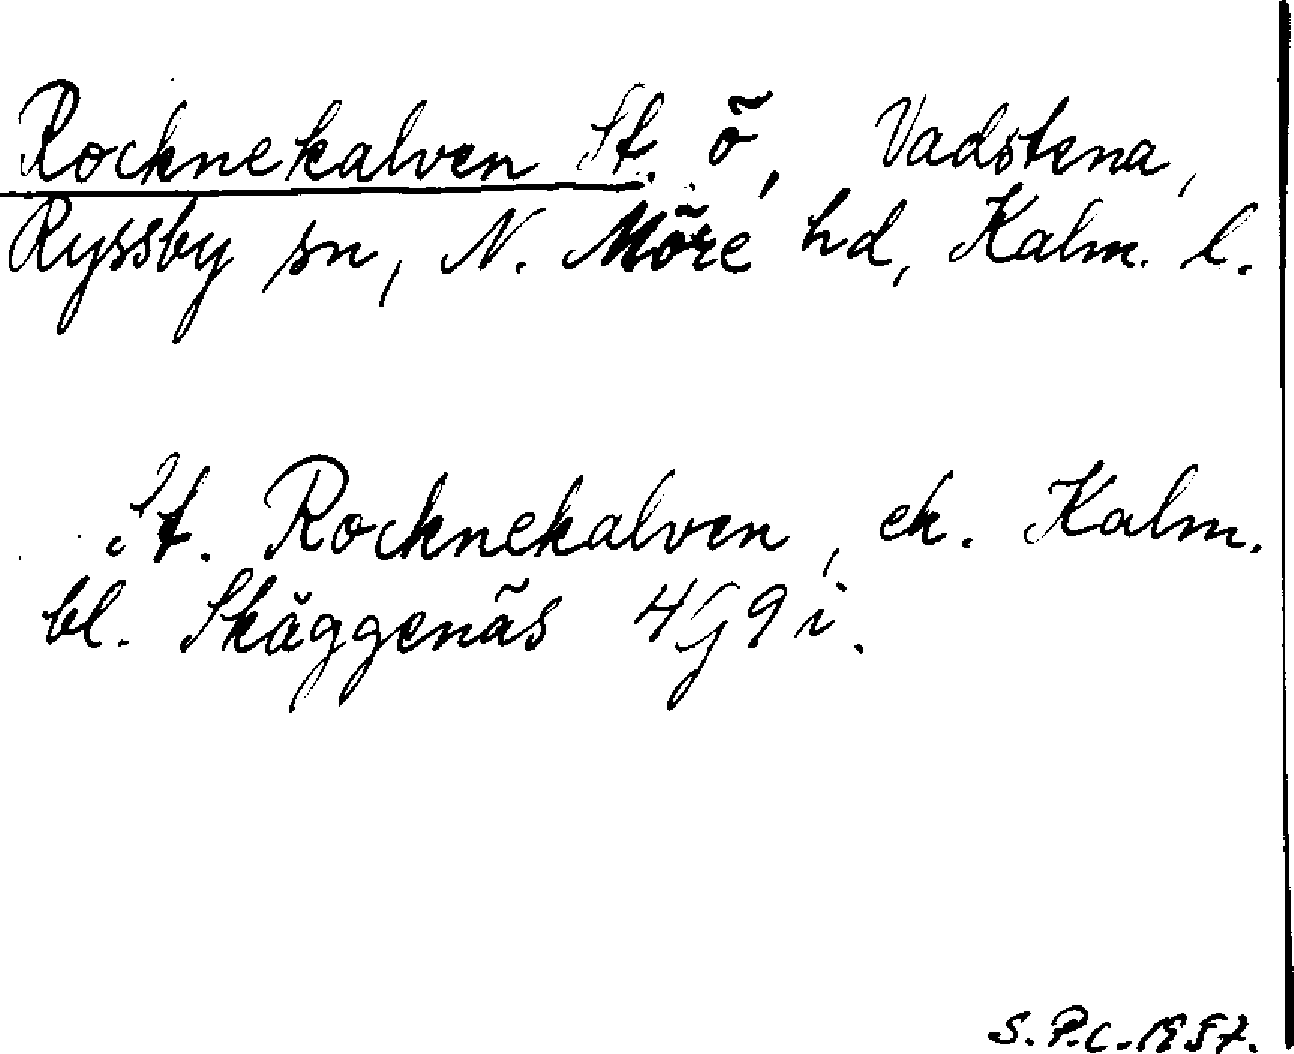 Rocknekalven St. ö, Vadstena,
Ryssby sn, N. Möre hd, Kalm. l.
St. Rocknekalven, ek. Kalm.
bl. Skäggenäs 4G9i.
S.P.C. 1957.